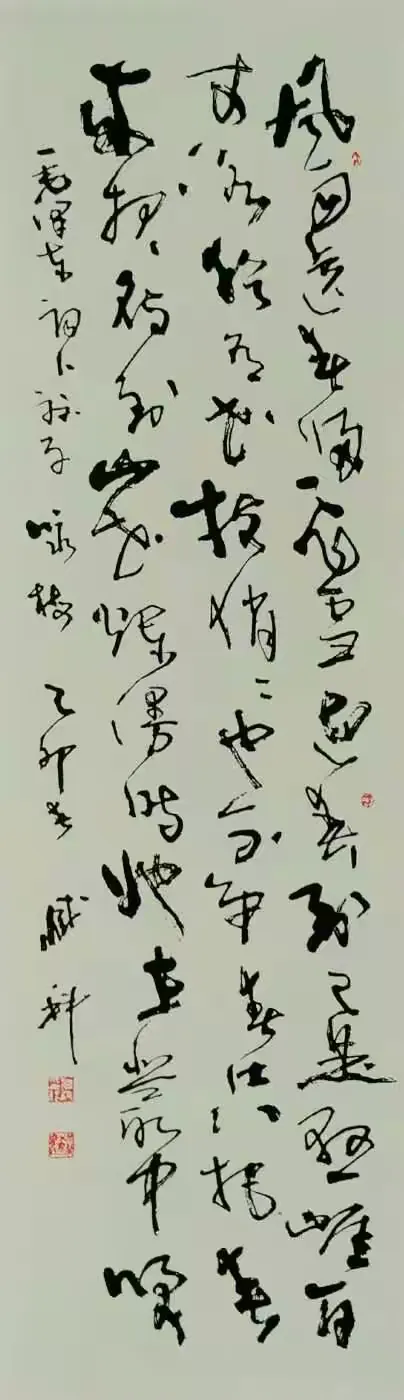 风雨送春归飞雪迎春到已是悬崖百
丈冰犹有花枝俏〻也不争春只把春
来报待到山花烂漫时她在丛中笑
毛泽东词卜算子 咏梅 乙卯春